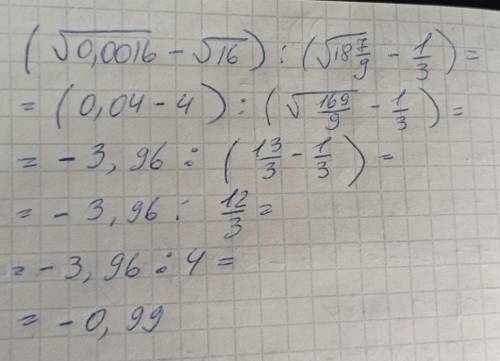 (√0,0016 - √16) : (√18 7/9 - 1/3) =
= (0,04 - 4) : (√169/9 - 1/3) =
= - 3,96 : (13/3 - 1/3) =
= - 3,96 : 12/3 =
= - 3,96 : 4 =
= - 0,99